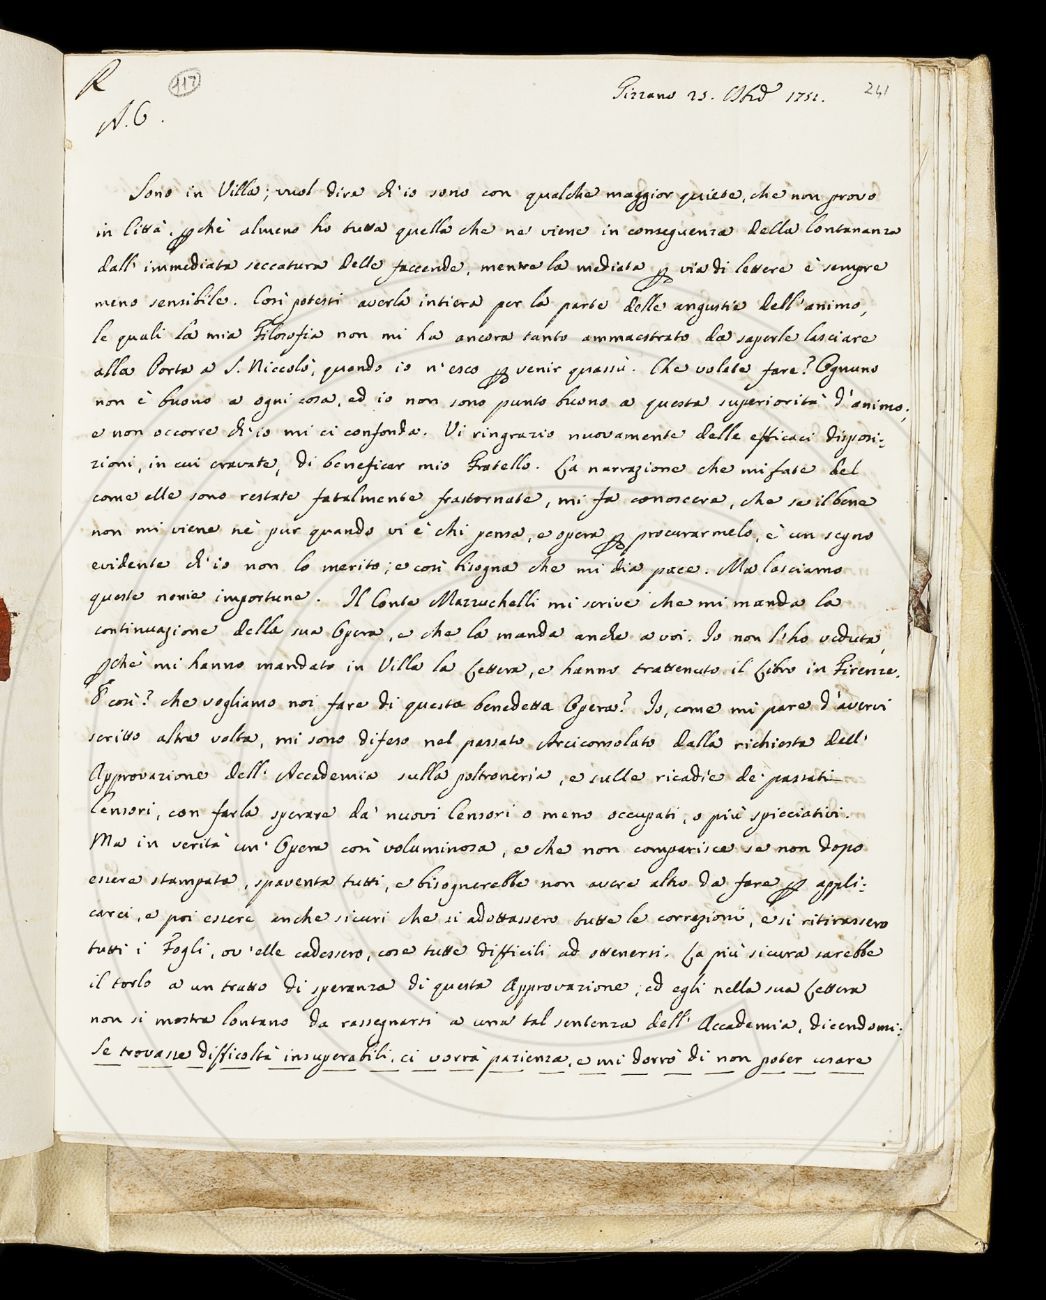 R
117
Pizzano 25. Ott.e 1751.
241
N. C.
Sono in Villa; vuol dire ch'io sono con qualche maggior quiete, che non provo
in Città, pchè almeno ho tutta quella che ne viene in conseguenza della lontananza
dall'immediata seccatura delle faccende, mentre la mediata p via di lettere è sempre
meno sensibile. Così potessi averla intiera per la parte delle angustie dell'animo,
le quali la mia Filosofia non mi ha ancora tanto ammaestrato da saperle lasciare
alla Porta a S. Niccolò, quando io n'esco p venir quassù. Che volete fare? Ognuno
non è buono a ogni cosa, ed io non sono punto buono a questa superiorità d'animo;
e non occorre ch'io mi ci confonda. Vi ringrazio nuovamente delle efficaci disposi:
zioni, in cui eravate, di beneficar mio Fratello. La narrazione che mi fate del
come elle sono restate fatalmente frastornate, mi fa conoscere, che se il bene
non mi viene nè pur quando vi è chi pensa, e opera p procurarmelo, è un segno
evidente ch'io non lo merito; e così bisogna che mi dia pace. Ma lasciamo
queste nenie importune. Il Conte Mazzuchelli mi scrive che mi manda la
continuazione della sua Opera, e che la manda anche a voi. Io non l'ho veduta,
pchè mi hanno mandato in Villa la Lettera, e hanno trattenuto il Libro in Firenze.
E così? che vogliamo noi fare di questa benedetta Opera? Io, come mi pare d'avervi
scritto altra volta, mi sono difeso nel passato Arciconsolato dalla richiesta dell'
Approvazione dell'Accademia sulla poltroneria, e sulle ricadie de' passati
Censori, con farla sperare da' nuovi Censori o meno occupati, o più spicciativi.
Ma in verità un'Opera così voluminosa, e che non comparisce se non dopo
essere stampata, spaventa tutti, e bisognerebbe non avere altro da fare p appli:
carci, e poi essere anche sicuri che si adottassero tutte le correzioni, e si ritirassero
tutti i Fogli, ov'elle cadessero, cose tutte difficili ad ottenersi. La più sicura sarebbe
il torlo a un tratto di speranza di questa Approvazione; ed egli nella sua Lettera
non si mostra lontano da rassegnarsi a una tal sentenza dell'Accademia, dicendomi:
Se trovasse difficoltà insuperabili, ci vorrà pazienza, e mi dorrò di non poter usare